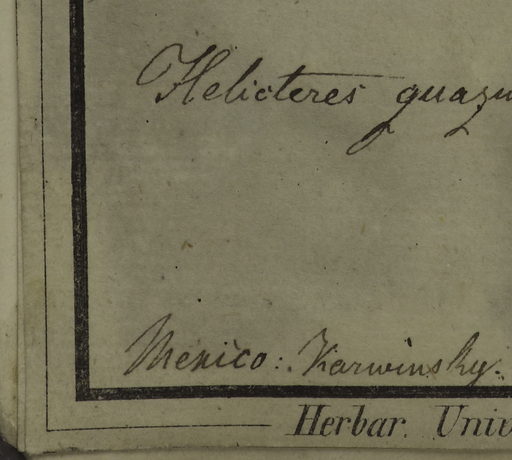 Helicteres guazu
Mexico: Karwinsky.
Herbar. Univ